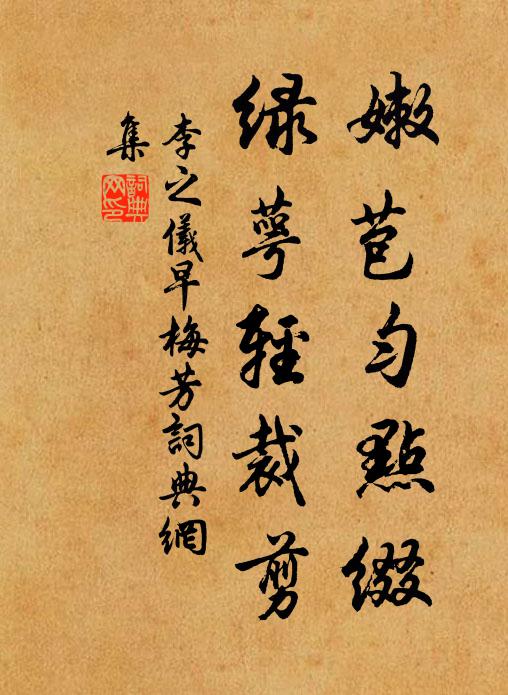 嫩苞匀點綴
緑萼輕裁剪
李之儀早梅芳詞典網
集
詞典
网印